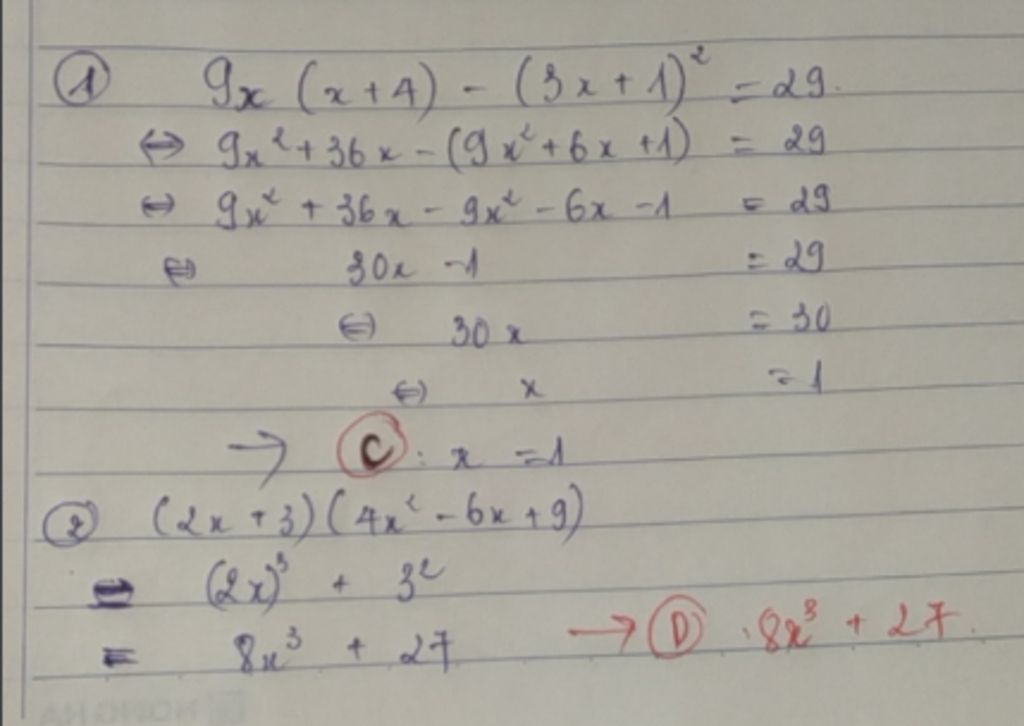 ① 9x (x+4) - (3x+1)² = 29.
⇔ 9x² + 36x - (9x² + 6x + 1) = 29
⇔ 9x² + 36x - 9x² - 6x - 1 = 29
⇔ 30x - 1 = 29
⇔ 30x = 30
⇔ x = 1
→ C : x = 1
② (2x + 3)(4x² - 6x + 9)
= (2x)³ + 3²
= 8x³ + 27 → D . 8x³ + 27.